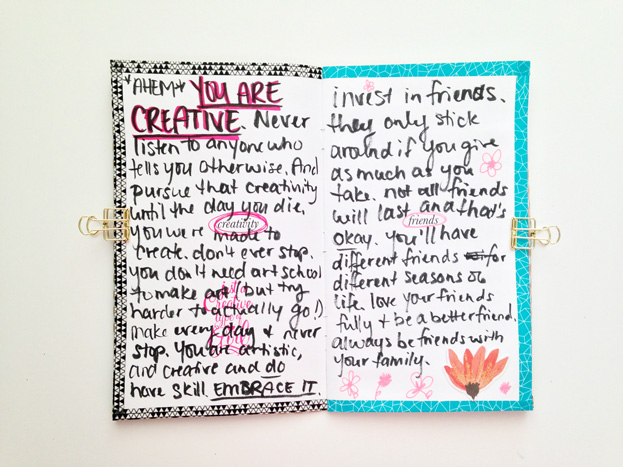 *AHEM* YOU ARE
CREATIVE. Never
listen to anyone who
tells you otherwise. And
pursue that creativity
until the day you die.
creativity
you were made to
create. don't ever stop.
you don't need art school
to make art (but try
Creative
harder to actually go!)
type of
make every day & never
stop. You are artistic,
and creative and do
have skill. EMBRACE IT.
invest in friends.
they only stick
around if you give
as much as you
take. not all friends
will last and that's
friends
okay. you'll have
different friends for
different seasons of
life. love your friends
fully + be a better friend.
always be friends with
your family.